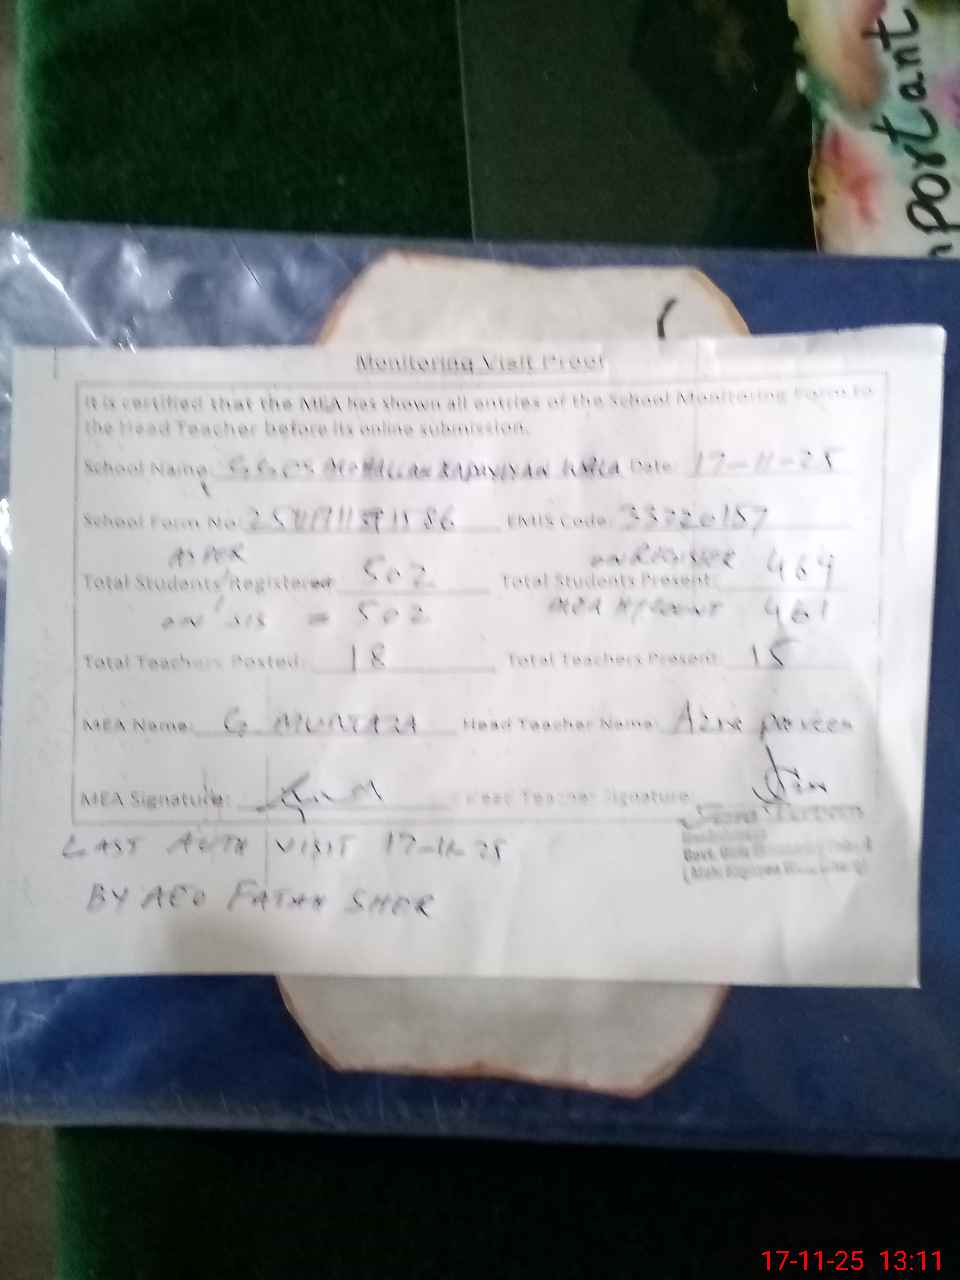 portant
Monitoring Visit Proof
It is certified that the MEA has shown all entries of the School Monitoring Form to
the Head Teacher before its online submission.
School Name: MOHALLAH WALA Date: 17-11-25
School Form No: EMIS Code: 33220157
AS PER ON REGISTER
Total Students Registered 502 Total Students Present: 464
ON SIS = 502 MEA H/COUNT 461
Total Teachers Posted: 18 Total Teachers Present: 15
MEA Name: G. MURTAZA Head Teacher Name: Parveen
MEA Signature: Head Teacher Signature:
LAST AUTH VISIT 17-11-25
BY AEO FATAH SHER
17-11-25 13:11